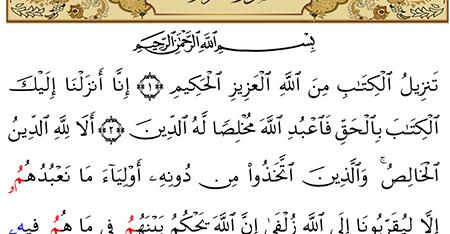 بِسْمِ اللَّهِ الرَّحْمَٰنِ الرَّحِيمِ
تَنزِيلُ الْكِتَٰبِ مِنَ اللَّهِ الْعَزِيزِ الْحَكِيمِ ﴿١﴾ إِنَّا أَنزَلْنَا إِلَيْكَ
الْكِتَٰبَ بِالْحَقِّ فَاعْبُدِ اللَّهَ مُخْلِصًا لَهُ الدِّينَ ﴿٢﴾ أَلَا لِلَّهِ الدِّينُ
الْخَالِصُ ۚ وَالَّذِينَ اتَّخَذُواْ مِن دُونِهِۦ أَوْلِيَآءَ مَا نَعْبُدُهُمُۥ
إِلَّا لِيُقَرِّبُونَا إِلَى اللَّهِ زُلْفَىٰ إِنَّ اللَّهَ يَحْكُمُ بَيْنَهُمُ فِي مَا هُمُ فِيهِۦ